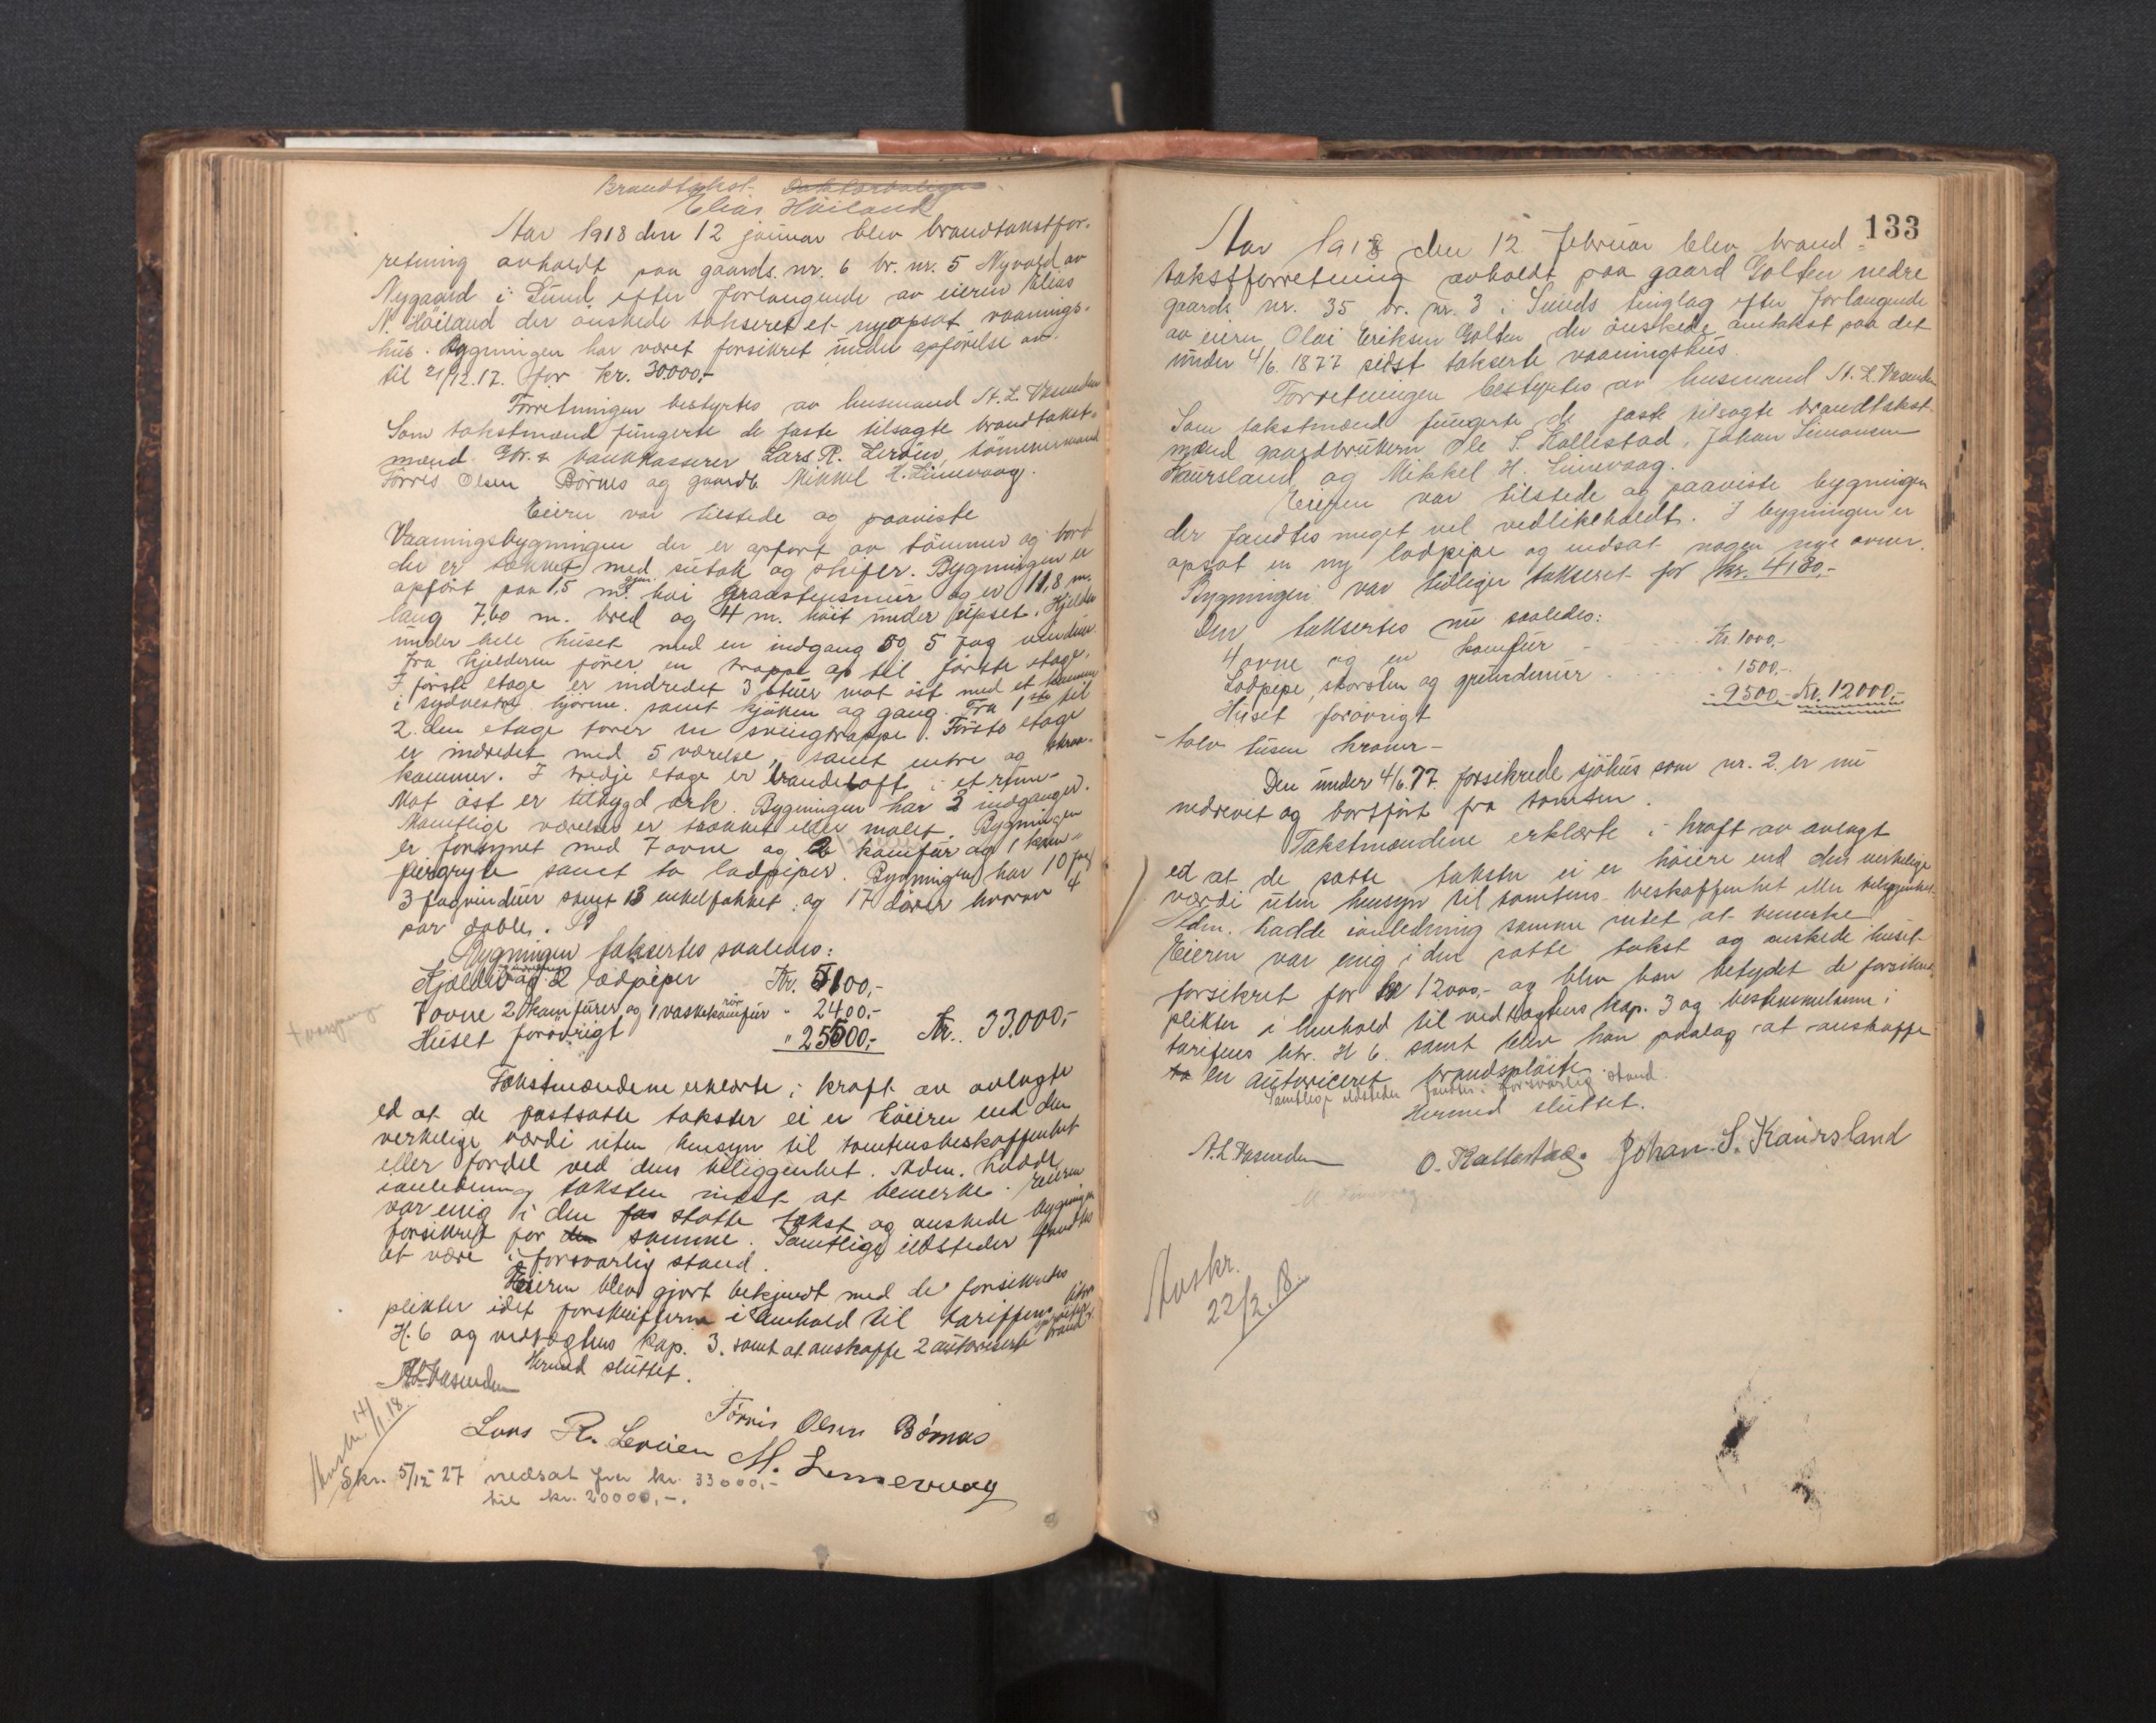 Brandtakst. Doktorboligen.
Elias Höiland
Aar 1918 den 12 januar blev brandtakstfor-
retning avholdt paa gaards. nr. 6 br. nr. 5 Nyvold av
Nygaard i Sund, efter forlangende av eieren Elias
N. Höiland der önskede taksert et nyopsat vaanings-
hus. Bygningen har været forsikret under opförelse an-
til 21/12.17. for kr. 30000,-
Forretningen bestyrtes av lensmand A. L. Vasenden
Som takstmænd fungerte de faste tilsagte brandtakst-
mænd. Gbr. & bankkasserer Lars R. Leröen, tömmermand
Törris Olsen Börnes og gaardb. Mikkel H. Limevaag.
Eieren var tilstede og paaviste
Vaaningsbygningen der er opfört av tömmer og bord
der er tækket med sutak og skifer. Bygningen er
opfört paa 1,5 m. gjen. höi graastensmur og er 11,8 m.
lang 7,60 m. bred og 4 m. höit under upset. Kjelder
under hele huset med en indgang og 5 fag vinduer.
Fra kjelderen förer en trappe op til förste etage.
I förste etage er indredet 3 stuer mot öst med et kammer
i sydvestre hjörne. samt kjöken og gang. Fra 1ste til
2. den etage förer en svingtrappe. Förste etage
er indredet med 5 værelse, samt entre og
kammer. I tredje etage er brandeloft i et rum-
Mot öst er tilbygd ark. Bygningen har 3 indganger.
Samtlige værelser er trækket eller malet. Bygningen
er forsynet med 7 ovne og 2 komfür og 1 kom-
fürgryte samt to ladpiper. Bygningen har 10 fag
3 fagvinduer samt 13 enkelfakket og 17 dörer hvorav 4
par doble.
Bygningen taksertes saaledes:
Kjelder og 2 ladpiper Kr. 5100,-
7 ovne 2 komfürer og 1 vaskekomfür " 2400.-
Huset forövrigt " 25500,- Kr. 33.000,-
Takstmændene erklærte i kraft av avlagte
ed at de fastsatte takster ei er höiere end den
verkelige værdi uten hensyn til tomtens beskaffenhet
eller fordel ved dens beliggenhet. Adm. hadde
ianledning taksten intet at bemerke. Eieren
var enig i den fas satte takst og önskede bygningen
forsikret for den samme. Samtlige ildsteder fandtes
at være i forsvarlig stand.
Eieren blev gjort bekjendt med de forsikredes
plikter idet forskrifterne i henhold til tariffens litra
H. 6 og vedtægtens kap. 3. samt at anskaffe 2 autoriserte brand-
spröiter.
Hermed sluttet.
A.L. Vasenden
Törris Olsen Börnes
Lars R. Leröen M. Limevaag
14/1.18.
Skr. 5/12 27 nedsat fra kr. 33000,-
til kr. 20000,-.
133
Aar 1918 den 12 februar blev brand-
takstforretning avholdt paa gaard Golten nedre
gaards nr. 35 br. nr. 3 i Sunds tinglag efter forlangende
av eieren Olai Eriksen Golten der önskede omtakst paa det
under 4/6. 1877 seidst takserte vaaningshus.
Forretningen bestyrtes av lensmand A. L. Vasenden
Som takstmænd fungerte de faste tilsagte brandtakst-
mænd gaardbrukern Ole S. Kallestad, Johan Simonsen
Kaursland og Mikkel H. Limevaag.
Eieren var tilstede og paaviste bygningen
der fandtes meget vel vedlikeholdt. I bygningen er
opsat en ny ladpipe og indsat nogen nye ovner.
Bygningen var tidliger taksert for kr. 4130,-
Den taksertes nu saaledes:
4 ovne og en komfür Kr. 1000,-
Ladpipe, skorsten og grundmur " 1500,-
Huset forövrigt " 9500,- Kr. 12000,-
-tolv tusen kroner-
Den under 4/6.77. forsikrede sjöhus som nr. 2. er nu
nedrevet og bortfört fra tomten.
Takstmændene erklærte i kraft av avlagt
ed at de satte takster ei er höiere end den verkelige
værdi uten hensyn til tomtens beskaffenhet eller beliggenhet.
Adm. hadde ianledning samme intet at bemerke
Eieren var enig i den satte takst og önskede huset
forsikret for kr 12000,- og blev han betydet de forsikredes
plikter i henhold til vedtægtens kap. 3 og bestemmelserne i
tarifens litr. H 6. samt blev han paalag at anskaffe
to en autoriceret brandspröite.
Samtlige ildsteder fandtes i forsvarlig stand.
Hermed sluttet.
A.L. Vasenden O. Kallestad. Johan. S. Kaursland
M Limevaag
Avskr.
22/2.18.